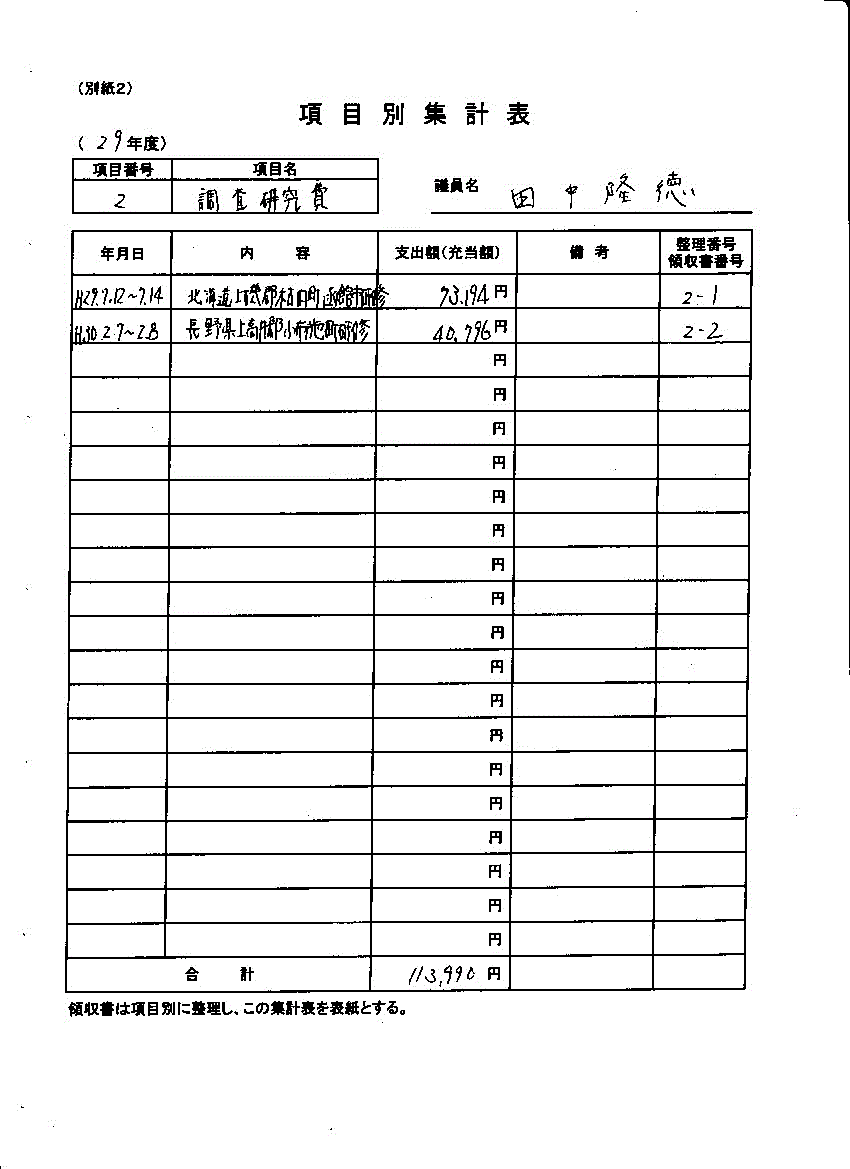 （別紙2）
項目別集計表
（ 29 年度）
項目番号 項目名
2 調査研究費
議員名 田中隆徳
年月日 内容 支出額（充当額） 備考 整理番号 領収書番号
H29.7.12～7.14 北海道上磯郡木古内町 函館市研修 73,194円 2-1
H.30.2.7～2.8 長野県上高井郡小布施町研修 40,796円 2-2
円
円
円
円
円
円
円
円
円
円
円
円
円
円
円
円
円
円
合計 113,990円
領収書は項目別に整理し、この集計表を表紙とする。